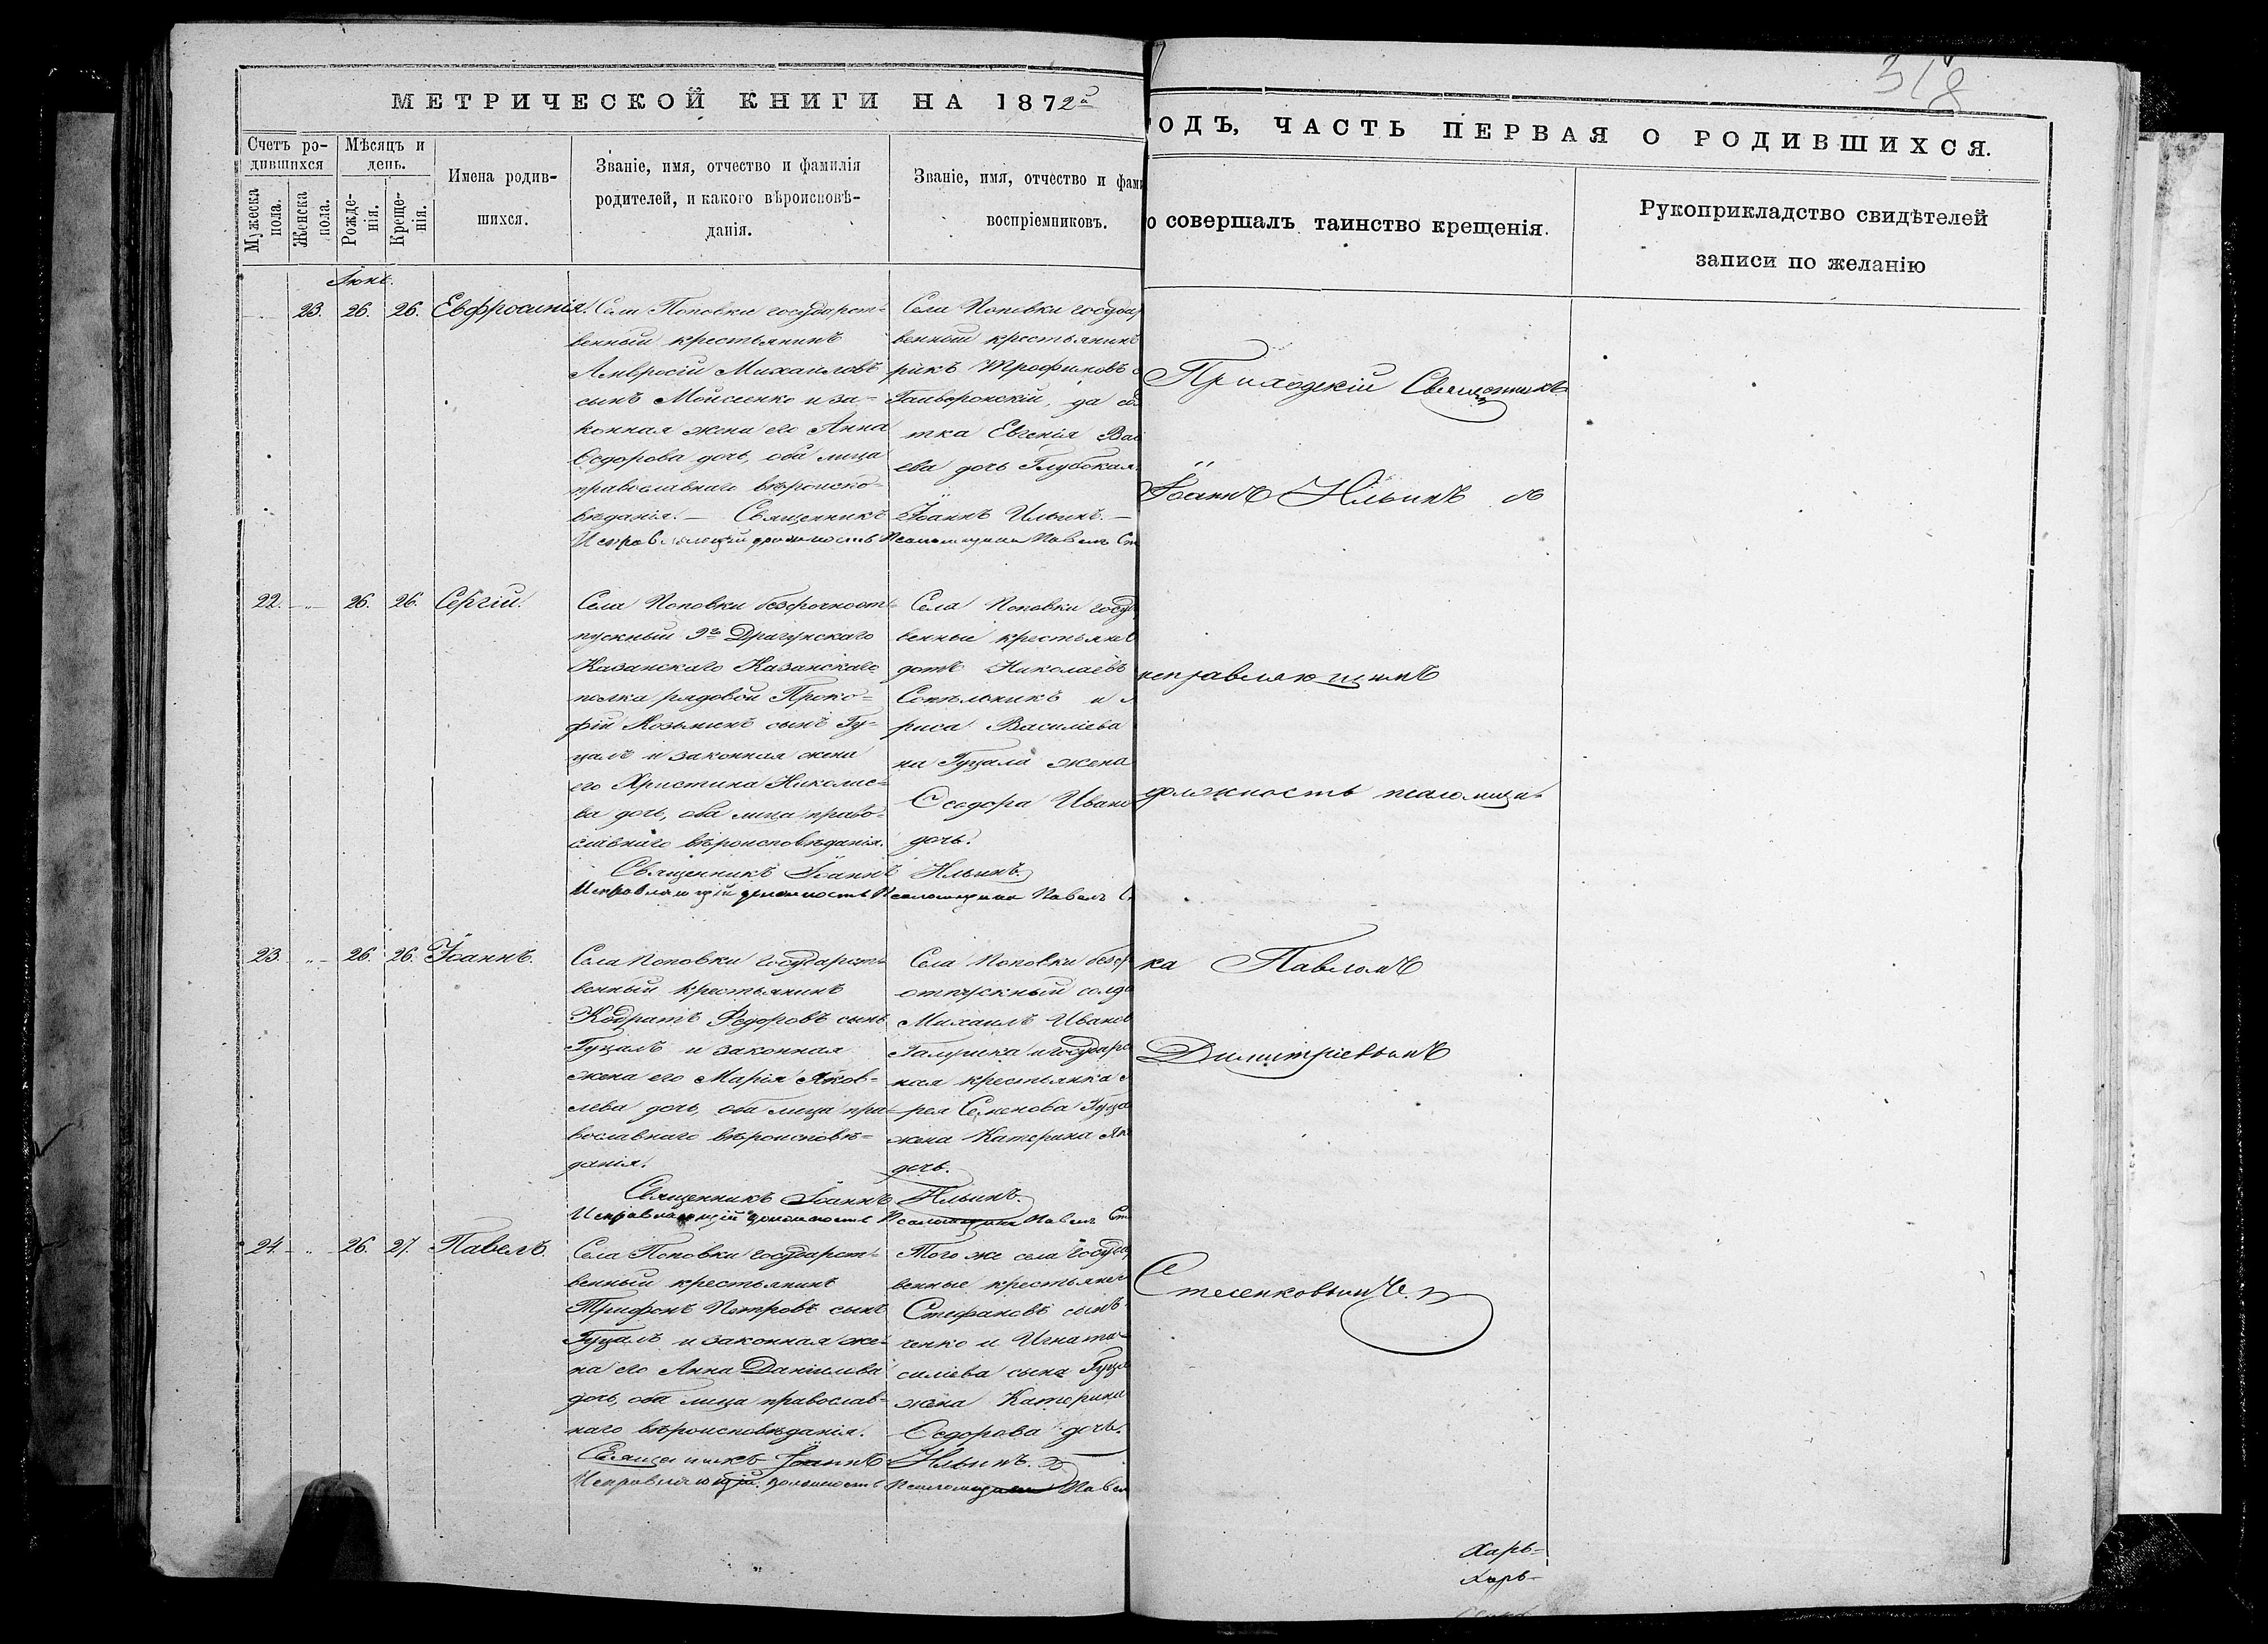 318
МЕТРИЧЕСКОЙ КНИГИ НА 1872й
ОДЪ, ЧАСТЬ ПЕРВАЯ О РОДИВШИХСЯ.
Счетъ ро-
дившихся
Мужеска
пола.
Женска
пола.
Мѣсяцъ и
день.
Рожде-
нія.
Креще-
нія.
Имена родив-
шихся.
Званіе, имя, отчество и фамилія
родителей, и какого вѣроисповѣ-
данія.
Званіе, имя, отчество и фами
воспріемниковъ.
о совершалъ таинство крещенія.
Рукоприкладство свидѣтелей
записи по желанію
Іюнь.
23. 26. 26. Евфросинія.
Села Поповки государст-
венный крестьянинъ
Амвросій Михаиловъ
сынъ Мойсеенко и за-
конная жена его Анна
Ѳедорова дочь, оба лица
православнаго вѣроиспо-
вѣданія. — Священникъ
Исправляющій должность
Села Поповки государ
венный крестьянинъ
рикъ Трофимовъ
Гайворонскій, да
тка Евгенія
ева дочь Глубокая
Іоаннъ Ильинъ. —
Псаломщика Павелъ Ст
22. 26. 26. Сергій.
Села Поповки безсрочноот-
пускный 9го Драгунскаго
Казанскаго Казанскаго
полка рядовой Проко-
фій Козьминъ сынъ Гу-
цалъ и законная жена
его Христина Николае-
ва дочь, оба лица право-
славнаго вѣроисповѣданія.
Священникъ Іоаннъ
Исправляющій должность
Села Поповки госуд
венные крестьяне
дотъ Николаевъ
Сотельникъ и
риса Василіева
на Гуцала жена
Ѳеодора Ивано
дочь.
Ильинъ
Псаломщика Павелъ С
23. 26. 26. Іоаннъ.
Села Поповки государст-
венный крестьянинъ
Кодратъ Федоровъ сынъ
Гуцалъ и законная
жена его Марія Яков-
лева дочь, оба лица пра-
вославнаго вѣроисповѣ-
данія.
Священникъ Іоаннъ
Исправляющій должность
Села Поповки безср
отпускный солда
Михаилъ Иванов
и государс
ная крестьянка
рея Семенова Гуца
жена Катерина Як
дочь.
Ильинъ.
Псаломщика Павелъ Ст
24. 26. 27. Павелъ.
Села Поповки государст-
венный крестьянинъ
Трифонъ Петровъ сынъ
Гуцалъ и законная же-
на его Анна Даніилова
дочь, оба лица православ-
наго вѣроисповѣданія.
Священникъ Іоаннъ
Исправляющій должность
Того же села государ
венные крестьяне
Стефановъ сынъ
ченко и Игната
силіева сына Гуца
жена Катерина
Ѳедорова дочь.
Ильинъ.
Псаломщика Павел
Приходскій Священникъ
Іоаннъ Ильинъ съ
исправляющимъ
должность псаломщи-
ка Павломъ
Димитріевымъ
Стесенковымъ.
Харь-
Харь-